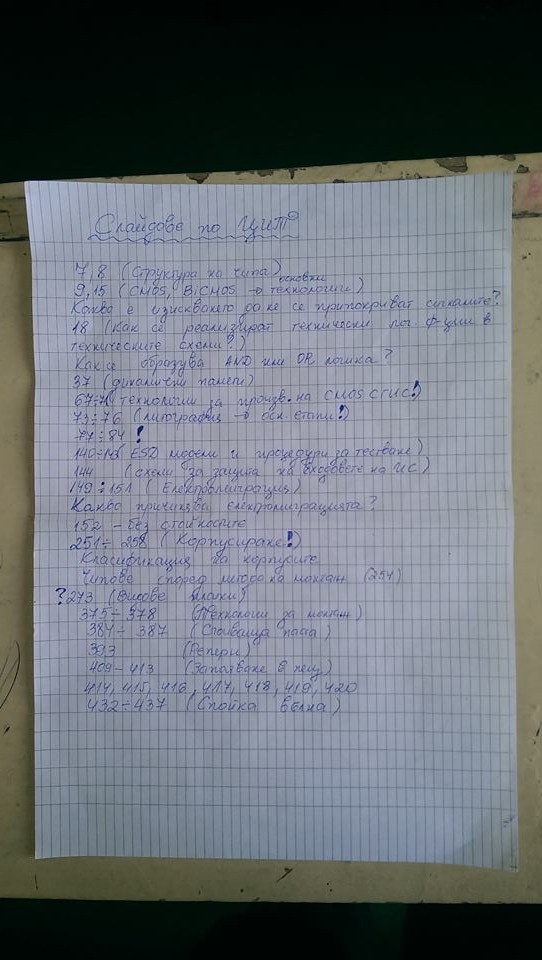 Слайдове по ЦИТ
7,8 (Структура на чипа)
основни
9,15 (CMOS, BiCMOS → технологии)
Какво е изискването да не се припокриват сигналите?
18 (Как се реализират технически лог. ф-ции в
техническите схеми?)
Как се образува AND или OR логика?
37 (динамични памети)
67÷71 (технологии за произв. на CMOS СГИС!)
73÷76 (литография → осн. етапи!)
77÷84 !
140÷143 (ESD модели и процедури за тестване)
144 (схеми за защита на входовете на ИС)
149÷151 (Електромиграция)
Какво причинява електромиграцията?
152 – без стойностите
251÷258 (Корпусиране!)
Класификация на корпусите
Чипове според метода на монтаж (254)
? 273 (Видове платки)
375÷378 (Технологии за монтаж)
384÷387 (Спояваща паста)
393 (Репери)
409–413 (Запояване в пещ)
414, 415, 416, 417, 418, 419, 420
432÷437 (Спойка вълна)